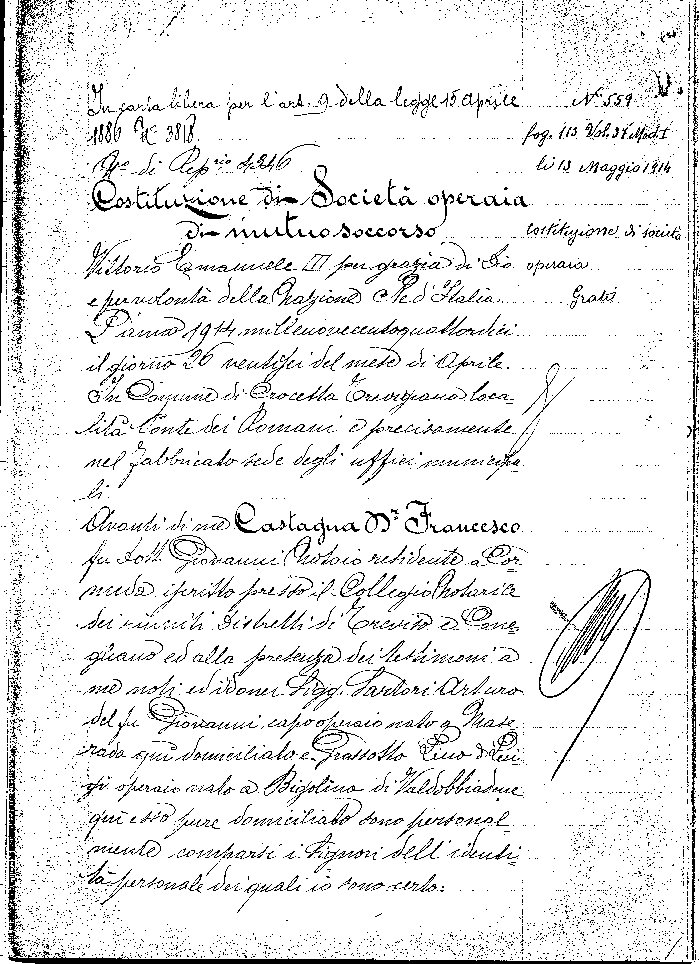 In carta libera per l'art. 9 della legge 15 aprile
1886 N 3818.
N° di Rep.rio 4346
Costituzione di Società operaia
di mutuo soccorso
Vittorio Emanuele III per grazia di Dio
e per volontà della Nazione Re d'Italia.
L'anno 1914 millenovecentoquattordici
il giorno 26 ventisei del mese di Aprile.
In Comune di Crocetta Trevigiana loca-
lità Conte dei Romani e precisamente
nel fabbricato sede degli uffici municipa
li
Avanti di me Castagna Dr Francesco
fu Dott. Giovanni Notaio residente a Cor-
nuda iscritto presso il Collegio Notarile
dei riuniti Distretti di Treviso e Cone-
gliano ed alla presenza dei testimoni a
me noti ed idonei Sigg. Sartori Arturo
del fu Giovanni capo operaio nato a Mase
rada qui domiciliato e Grassotto Lino di Lui
gi operaio nato a Bigolino di Valdobbiadene
qui esso pure domiciliato sono personal-
mente comparsi i Signori dell'identi-
tà personale dei quali io sono certo:
N° 559
fog. 113 Vol. 31 Mod. I
li 13 Maggio 1914
costituzione di società
operaia
Gratis